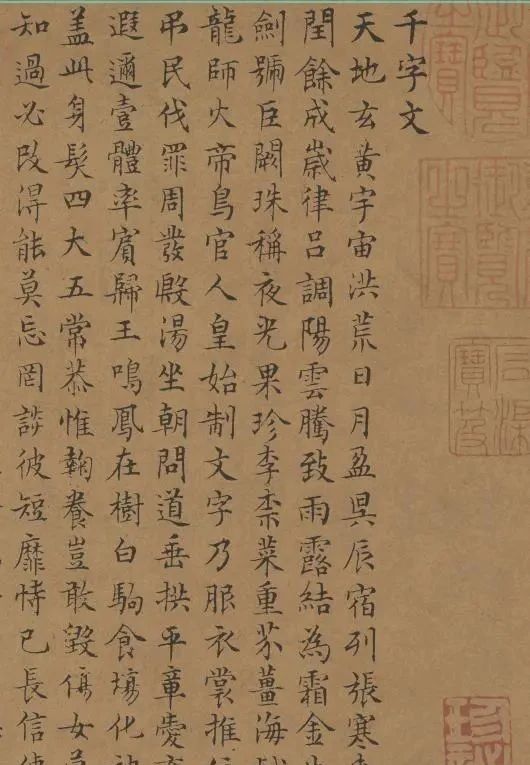 千字文
天地玄黃宇宙洪荒日月盈昃辰宿列張寒
閏餘成歲律呂調陽雲騰致雨露結為霜金
劍號巨闕珠稱夜光果珍李柰菜重芥薑海
龍師火帝鳥官人皇始制文字乃服衣裳推
弔民伐罪周發殷湯坐朝問道垂拱平章愛
遐邇壹體率賓歸王鳴鳳在樹白駒食場化
蓋此身髮四大五常恭惟鞠養豈敢毀傷女
知過必改得能莫忘罔談彼短靡恃己長信
石渠
寶笈